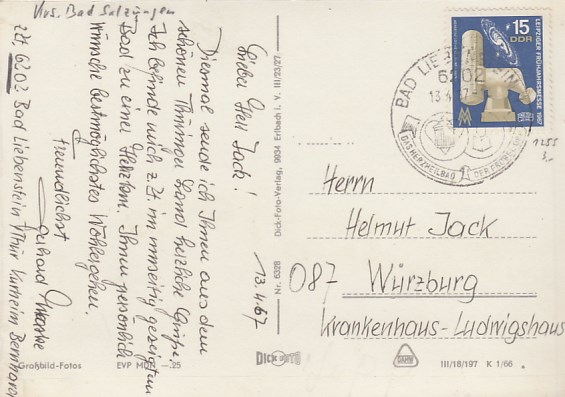 Krs. Bad Salzungen
13.4.67
Lieber Herr Jack!
Diesmal sende ich Ihnen aus dem
schönen Thüringer Land herzliche Grüße.
Ich befinde mich z. Zt. im umseitig gezeigten
Bad zu einer Herzkur. Ihnen persönlich
Wünsche bestmöglichstes Wohlergehen.
Freundlichst
Gerhard
z.Zt. 6202 Bad Liebenstein Thür Kurheim Bernhard
Großbild-Fotos
EVP MDN -.25
Nr. 6328
Dick-Foto-Verlag, 9934 Erlbach i. V. III/29/27
DICK FOTO
15
DDR
LEIPZIGER FRÜHJAHRSMESSE 1967
BAD LIEBENSTEIN
6202
13.4.67
DAS HERZHEILBAD
1255
3,-
Herrn
Helmut Jack
087 Würzburg
Krankenhaus-Ludwigshaus
III/18/197 K 1/66